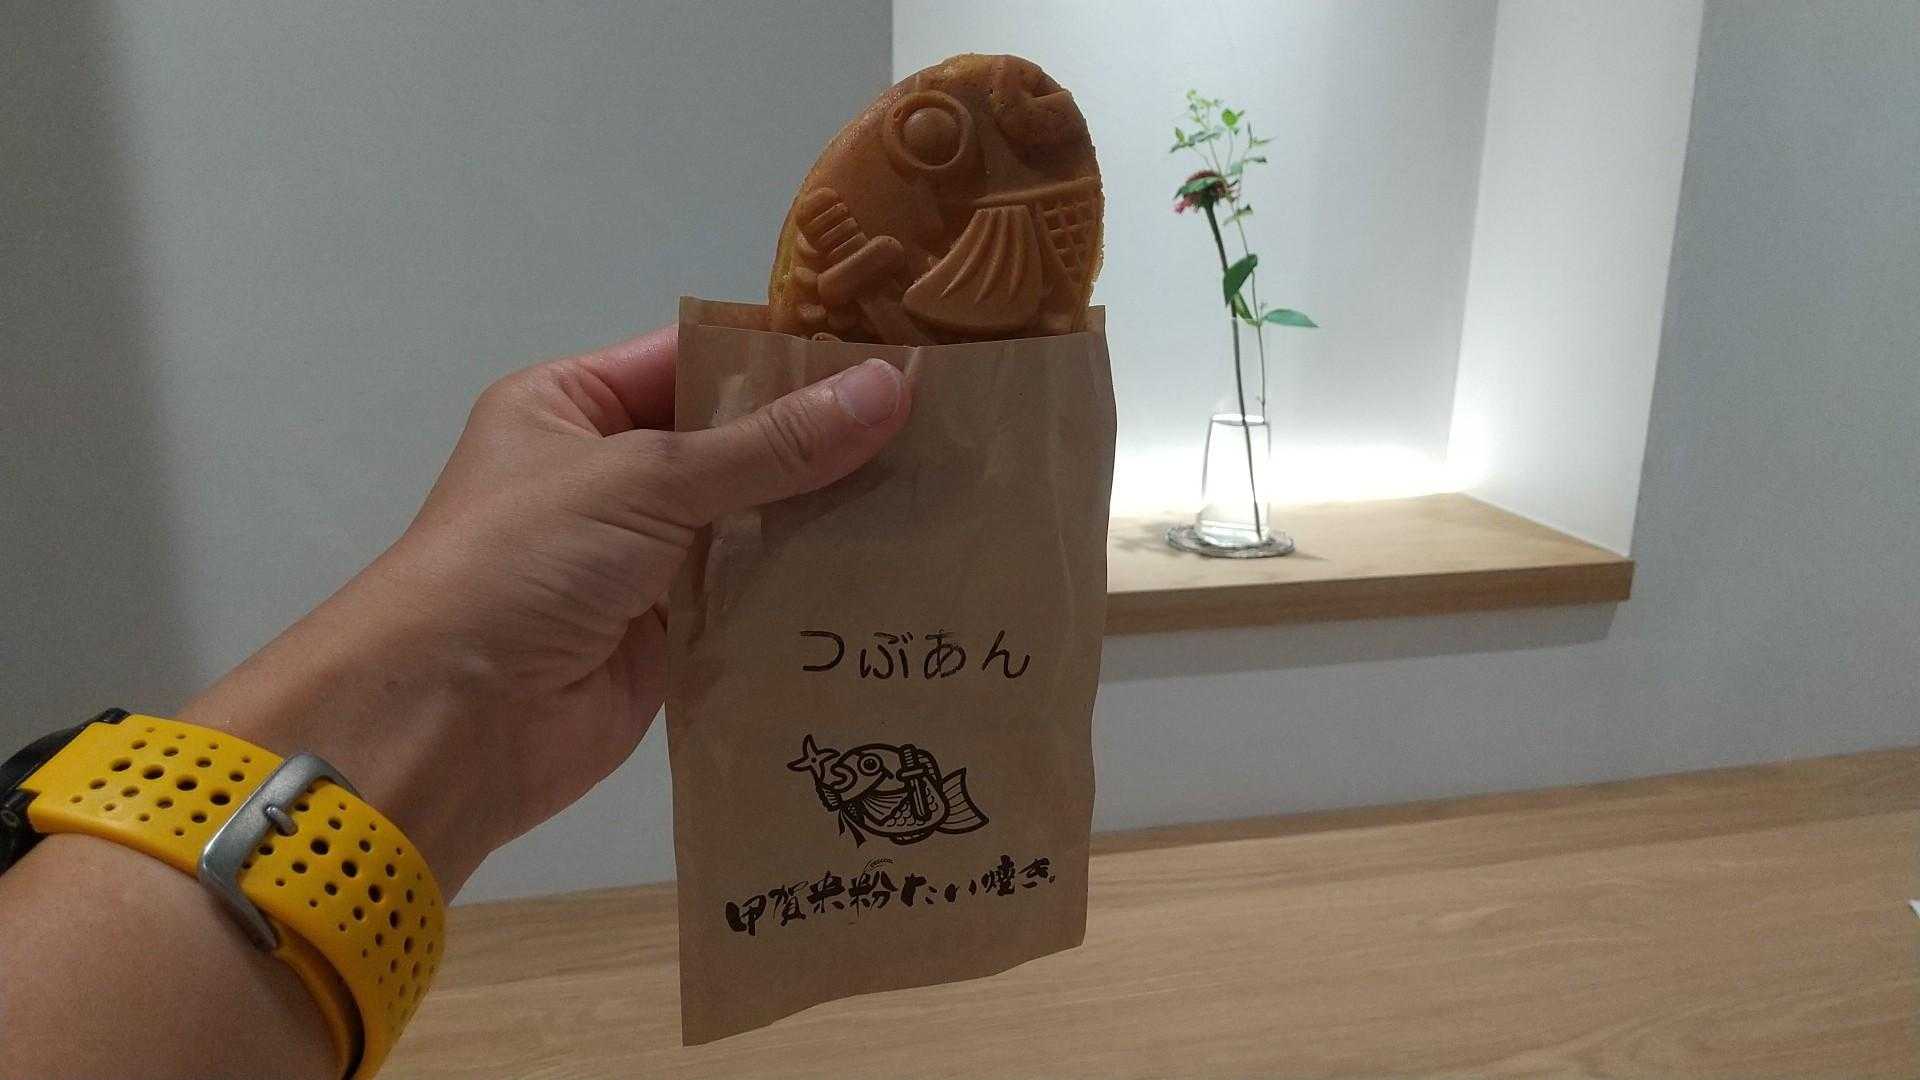 つぶあん
甲賀米粉たい焼き